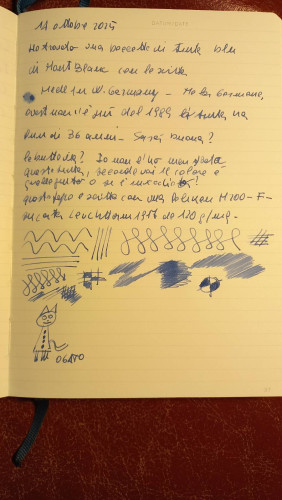 11 ottobre 2025
Ho trovato una boccetta di Tinta blu
di Mont Blanc con la scritta
Made in W. Germany - Ma la Germania,
ovest non c'è più dal 1989 la tinta ha
più di 36 anni - Sarà buona?
Io non l'ho mai
questa tinta, secondo voi il colore è
giusto o si è
questa pagina è scritta con una Pelikan M200-F-
su carta Leuchtturm 1917 da 120 g/mq.
OGATO